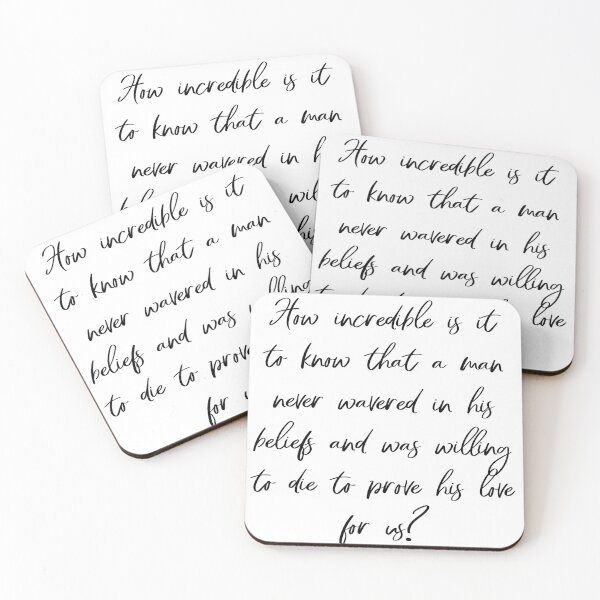 How incredible is it
to know that a man
never wavered in
How incredible is it
to know that a man
never wavered in his
beliefs and was willing
to love
How incredible is it
to know that a man
never wavered in his
beliefs and was
to die to prove
for
How incredible is it
to know that a man
never wavered in his
beliefs and was willing
to die to prove his love
for us?